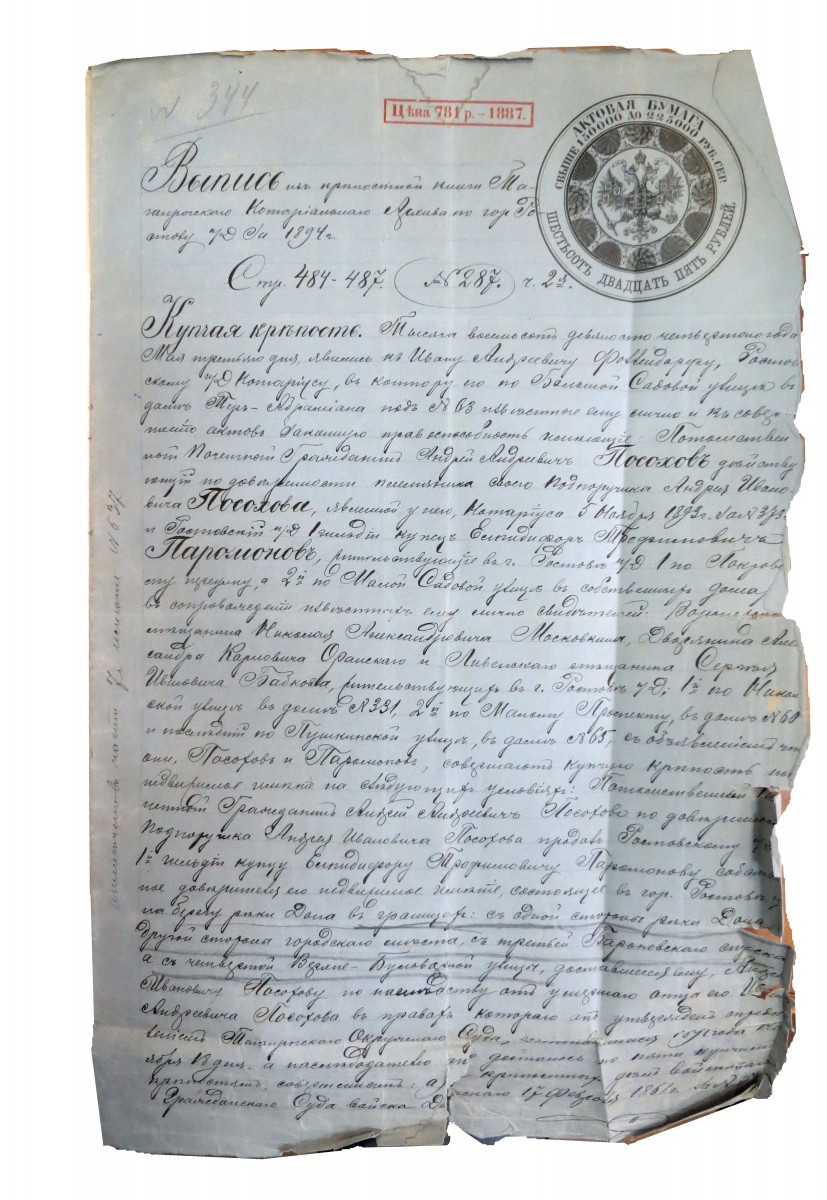 N 344
Цѣна 781 р. – 1887.
АКТОВАЯ БУМАГА
СВЫШЕ 150000 ДО 225000 РУБ. СЕР.
ШЕСТЬСОТЪ ДВАДЦАТЬ ПЯТЬ РУБЛЕЙ.
Выпись изъ крѣпостной книги Та-
ганрогскаго Нотаріальнаго Архива по гор. Ро-
стову н/Д за 1894 г.
Стр. 484-487. № 287. ч. 2я.
Купчая крѣпость. Тысяча восемьсотъ девяносто четвертаго года
Мая третьяго дня, явились къ Ивану Андреевичу Росто-
скому н/Д Нотаріусу, въ контору его по Большой Садовой улицѣ въ
домѣ Теръ-Абраміана подъ № 63 извѣстные ему лично и къ совер-
шенію актовъ законную правоспособность имѣющіе: Потомствен
ный Почетный Гражданинъ Андрей Андреевичъ Посоховъ дѣйству
ющій по довѣренности племянника своего Подпоручика Андрея Ивано-
вича Посохова, явленной у него, Нотаріуса 5 Ноября 1893 г. за № 373
и Ростовскій н/Д 1 гильдіи купецъ Елпидифоръ Трофимовичъ
Парамоновъ, жительствующіе въ г. Ростовѣ н/Д 1 по Покров
скому переулку, а 2й по Малой Садовой улицѣ въ собственныхъ домахъ
въ сопровожденіи извѣстныхъ ему лично свидѣтелей:
мѣщанина Николая Александровича Московкина, Дворянина Алек
сандра Карловича и мѣщанина Сергѣя
Ивановича Бабкова, жительствующихъ въ г. Ростовѣ н/Д: 1й по Никол
ской улицѣ въ домѣ № 331, 2й по Малому Проспекту, въ домѣ № 60
и послѣдній по Пушкинской улицѣ, въ домѣ № 65, съ объявленіемъ что
они, Посоховъ и Парамоновъ, совершаютъ купчую крѣпость на
недвижимое имѣніе на слѣдующихъ условіяхъ: Потомственный По
четный Гражданинъ Андрей Андреевичъ Посоховъ по довѣренности
Подпоручика Андрея Ивановича Посохова продалъ Ростовскому н/Д
1й гильдіи купцу Елпидифору Трофимовичу Парамонову собствен
ное довѣрителя его недвижимое имѣніе, состоящее въ гор. Ростовѣ н/Д
на берегу рѣки Дона въ границахъ: съ одной стороны рѣки Дона
другой стороны городскаго мѣста, съ третьей спуска
а съ четвертой Верхне-Бульварной улицы, доставшееся ему, Андрею
Ивановичу Посохову по наслѣдству отъ умершаго отца его Ивана
Андреевича Посохова въ правахъ котораго онъ утвержденъ опредѣ
леніемъ Таганрогскаго Окружнаго Суда, года
ября 13 дня, а наслѣдодателю его досталось по пяти купчимъ
крѣпостямъ, совершеннымъ:
Гражданскаго Суда войска 17 Февраля 1861 г.
имѣніи № 637